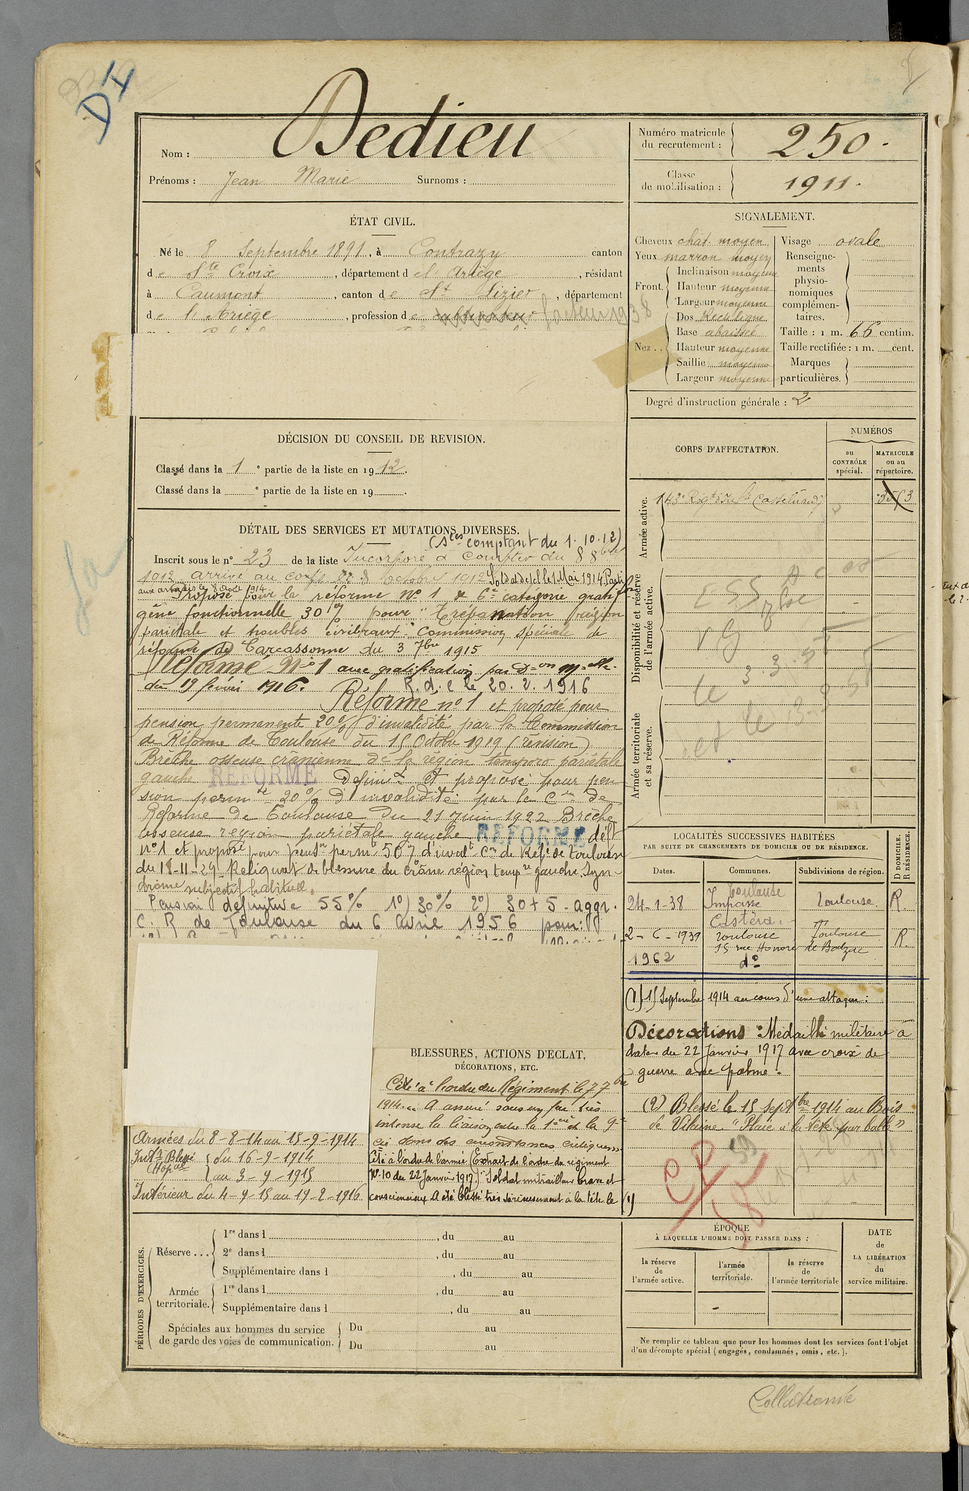 DI
Nom : Dedieu
Prénoms : Jean Marie Surnoms :
Numéro matricule du recrutement : 250.
Classe de mobilisation : 1911.
ÉTAT CIVIL.
Né le 8 Septembre 1891, à Contrazy canton
de Ste Croix, département de l'Ariège, résidant
à Caumont, canton de St Lizier, département
de l'Ariège, profession de cultivateur facteur 1938
SIGNALEMENT.
Cheveux chât. moyen
Yeux marron moyen
Front. Inclinaison moyenne
Hauteur moyenne
Largeur moyenne
Nez.. Dos Rectiligne
Base abaissée
Hauteur moyenne
Saillie moyenne
Largeur moyenne
Visage ovale
Renseigne-
ments
physio-
nomiques
complémen-
taires.
Taille : 1 m. 66 centim.
Taille rectifiée : 1 m. cent.
Marques
particulières.
Degré d'instruction générale : 2
DÉCISION DU CONSEIL DE REVISION.
Classé dans la 1e partie de la liste en 1912.
Classé dans la e partie de la liste en 19 .
CORPS D'AFFECTATION.
NUMÉROS
au CONTRÔLE spécial.
MATRICULE ou au répertoire.
Armée active.
Disponibilité et réserve de l'armée active.
Armée territoriale et sa réserve.
DÉTAIL DES SERVICES ET MUTATIONS DIVERSES.
(Sces comptant du 1.10.12)
Inscrit sous le no 23 de la liste Incorporé à compter du 8 8bre
1912 arrivé au corps le 8 octobre 1912 Soldat de 1ère Cl. le 1 Mai 1914 Parti
aux armées le 8 août 1914
Proposé pour la réforme No 1 & 6e catégorie gratifon
gêne fonctionnelle 30% pour "Trépanation région
pariétale et troubles cérébraux" Commission spéciale de
réforme de Carcassonne du 3 7bre 1915
Réformé No 1 avec gratification par Don Melle
du 19 février 1916. R.d.c le 20.2.1916
Réformé no 1 et proposé pour
pension permanente 20% d'invalidité par la Commission
de Réforme de Toulouse du 15 Octobre 1919 (révision)
Brèche osseuse crânienne de la région temporo pariétale
gauche RÉFORMÉ Définitif et proposé pour pen
sion permte 20% d'invalidité par la Con de
Réforme de Toulouse du 21 Juin 1922 Brèche
osseuse région pariétale gauche RÉFORMÉ déft
no 1 et proposé pour pension permte 50% d'invalté Con de Réfe de Toulouse
du 18-11-29 Reliquat de blessure du crâne région tempre gauche. Syn-
drôme subjectif habituel.
Pension définitive 55% 1o) 30% 2o) 20+5 - aggr.
C.R de Toulouse du 6 Avril 1956 pour:
LOCALITÉS SUCCESSIVES HABITÉES
PAR SUITE DE CHANGEMENTS DE DOMICILE OU DE RÉSIDENCE.
Dates. Communes. Subdivisions de région. D DOMICILE. R RÉSIDENCE.
24-1-38 Toulouse Impasse Cistéra. Toulouse R
2-6-1939 Toulouse 15 rue Honoré de Balzac Toulouse R
1962 do
(1) 15 Septembre 1914 au cours d'une attaque :
Décorations : Médaille militaire à
dater du 22 Janvier 1917 avec croix de
guerre avec palme.
(2) Blessé le 15 septbre 1914 au Bois
de Ville "Plaie à la tête par balle"
BLESSURES, ACTIONS D'ÉCLAT,
DÉCORATIONS, ETC.
Cité à l'ordre du Régiment le 27 bre
1914. A assuré sous un feu très
intense la liaison entre la 1ère et la 9e
cie dans des circonstances critiques
Cité à l'ordre de l'armée (Extrait de l'ordre du régiment
No 10 du 22 Janvier 1917) "Soldat mitrailleur brave et
consciencieux. A été blessé très sérieusement à la tête le (1)
Armées du 8-8-14 au 15-9-1914
Intr Blessé Hôpal du 16-9-1914
au 3-9-1915
Intérieur du 4-9-15 au 19-2-1916
CP
58
PÉRIODES D'EXERCICES.
Réserve ... 1re dans l , du au
2e dans l , du au
Supplémentaire dans l , du au
Armée territoriale. 1re dans l , du au
Supplémentaire dans l , du au
Spéciales aux hommes du service
de garde des voies de communication. Du au
Du au
ÉPOQUE
À LAQUELLE L'HOMME DOIT PASSER DANS :
la réserve de l'armée active.
l'armée territoriale.
la réserve de l'armée territoriale
DATE de LA LIBÉRATION du service militaire.
Ne remplir ce tableau que pour les hommes dont les services font l'objet
d'un décompte spécial (engagés, condamnés, omis, etc.).